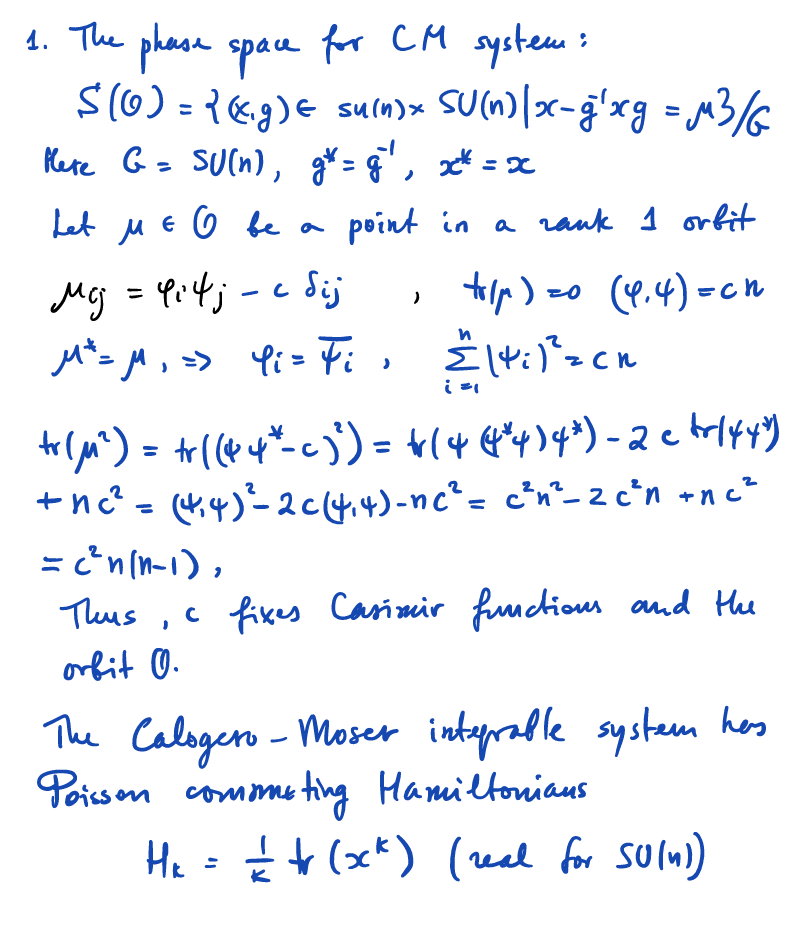 1. The phase space for CM system:
S(O) = {(x,g) ∈ su(n) × SU(n) | x - g⁻¹xg = μ}/G
Here G = SU(n), g* = g⁻¹, x* = x
Let μ ∈ O be a point in a rank 1 orbit
μij = φiψj - c δij , tr(μ) = 0 (φ,ψ) = cn
μ* = μ, ⇒ φi = ψ̄i , ∑ⁿᵢ₌₁ |ψi|² = cn
tr(μ²) = tr((ψψ* - c)²) = tr(ψ(ψ*ψ)ψ*) - 2c tr(ψψ*)
+ nc² = (ψ,ψ)² - 2c(ψ,ψ) - nc² = c²n² - 2c²n + nc²
= c²n(n-1),
Thus, c fixes Casimir functions and the
orbit O.
The Calogero - Moser integrable system has
Poisson commuting Hamiltonians
Hk = 1/k tr(xᵏ) (real for SU(n))